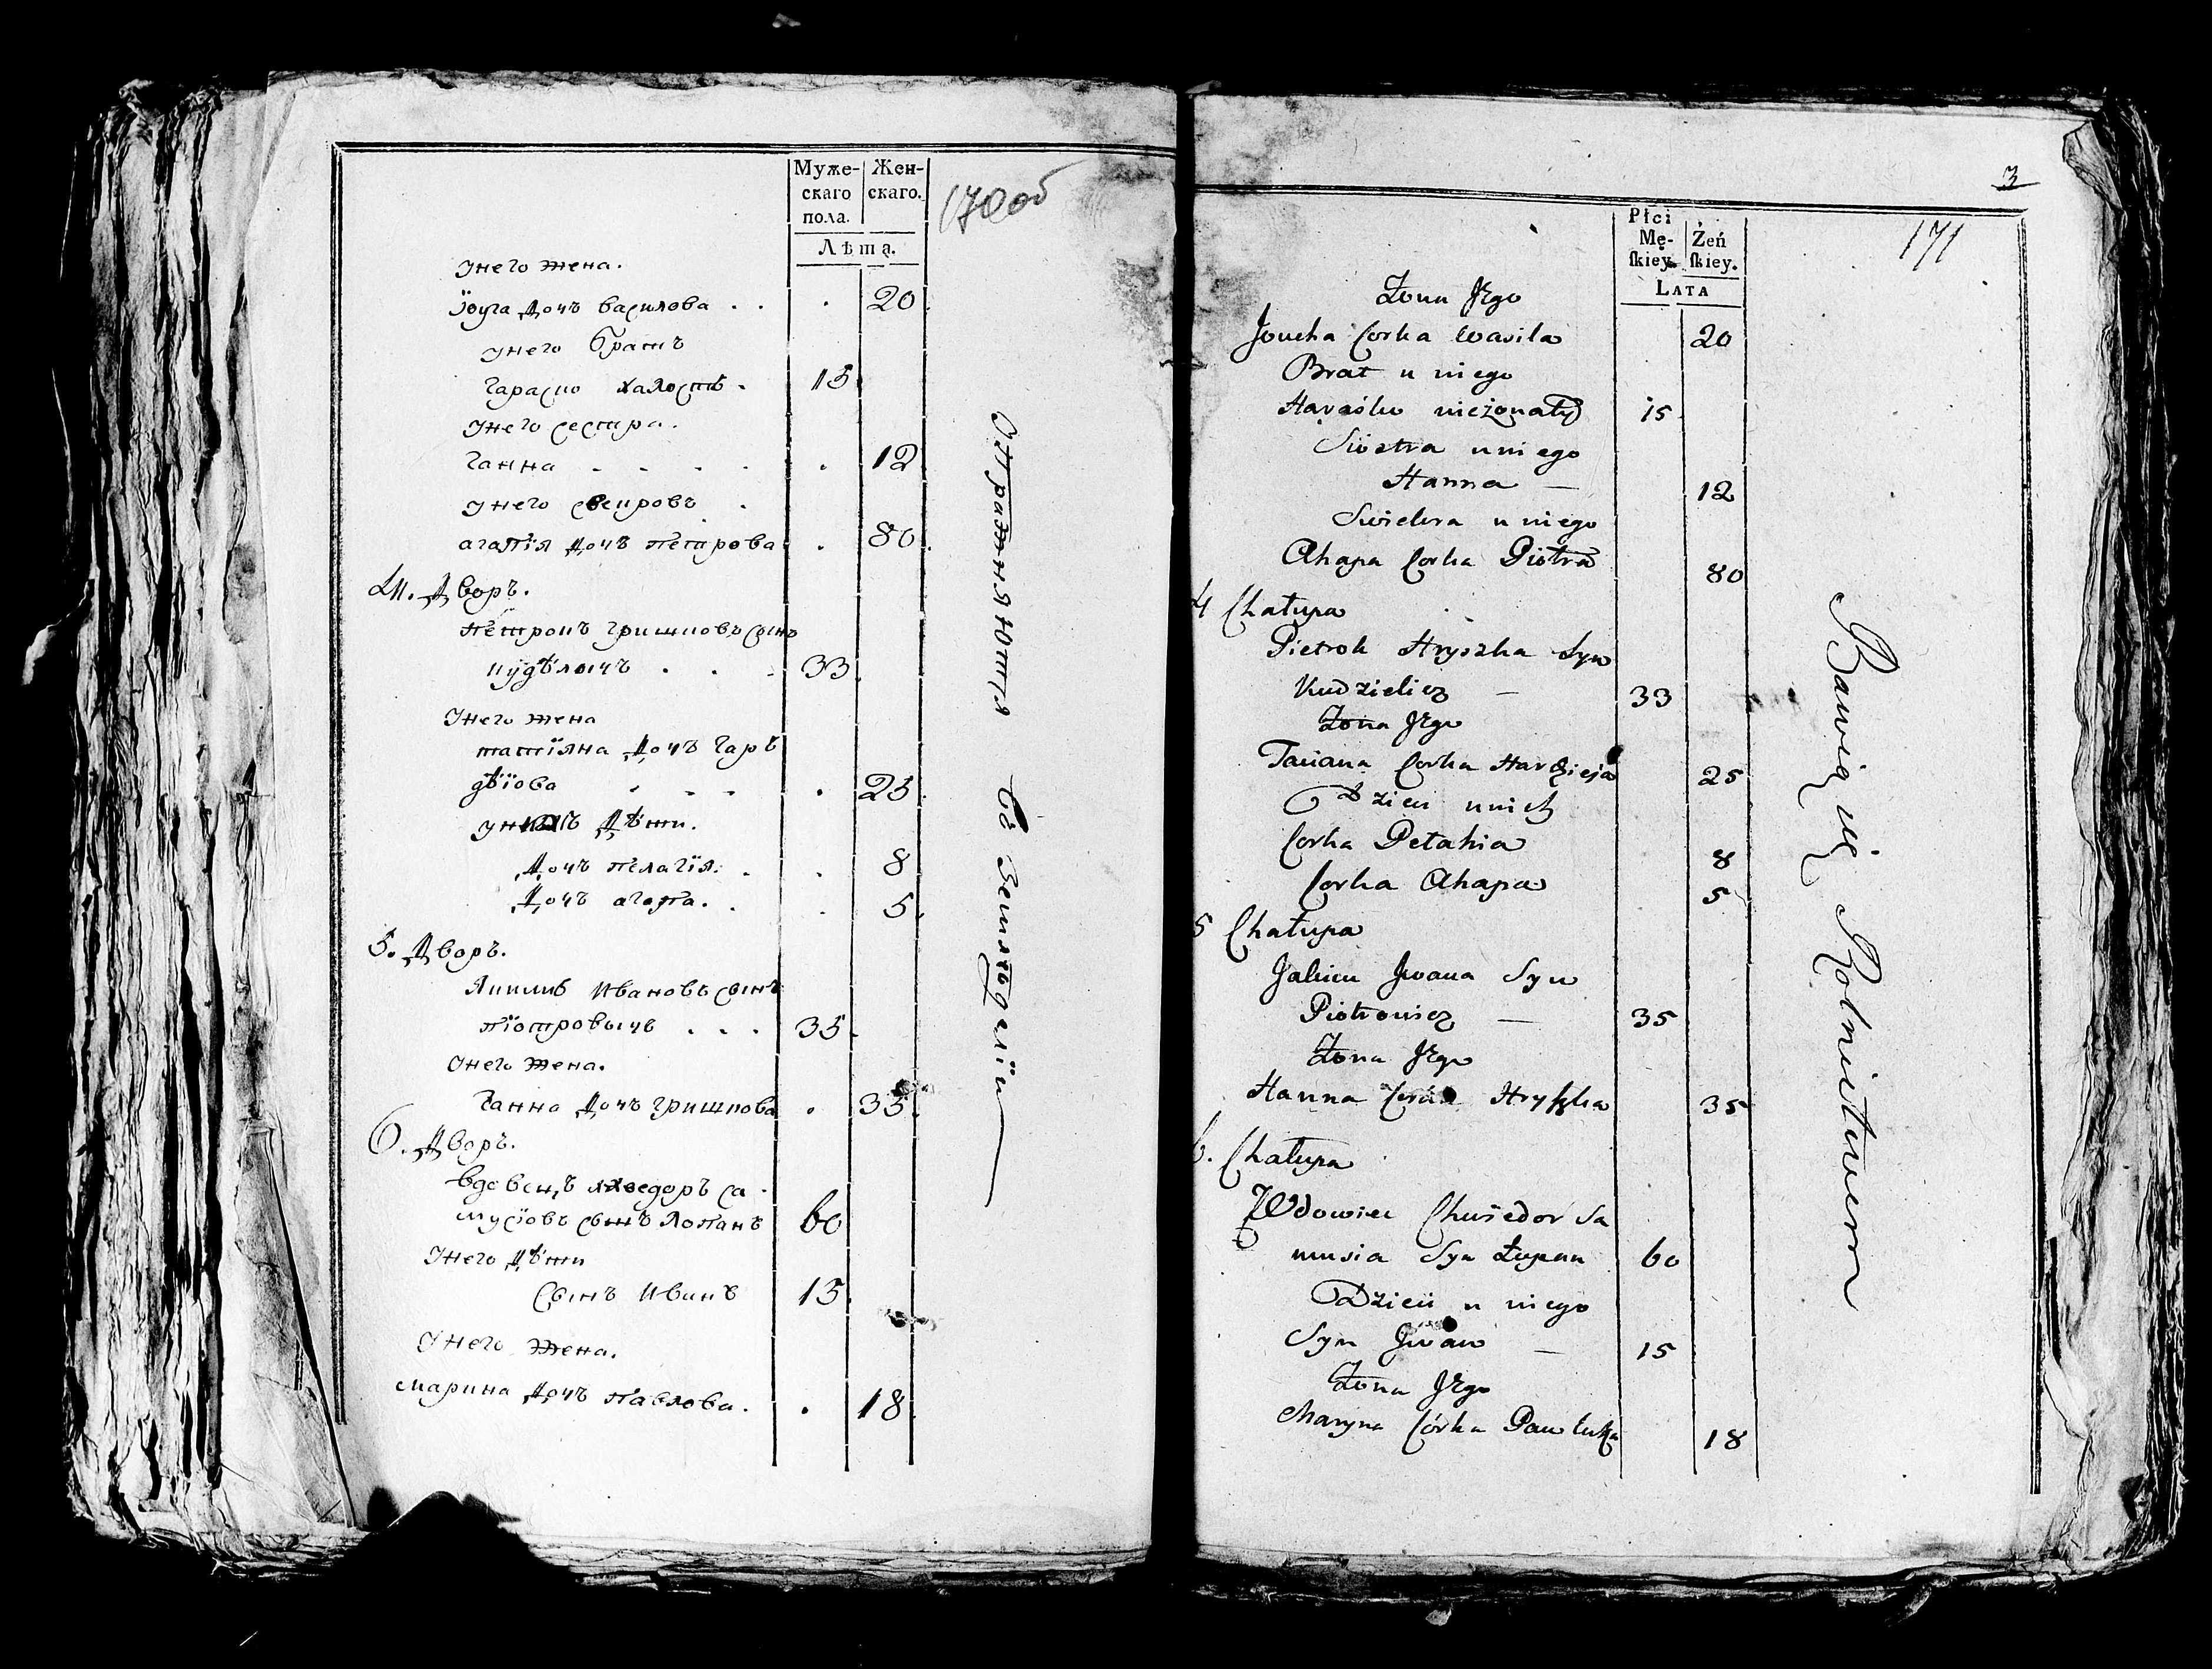 Муже-
скаго
пола.
Жен-
скаго.
Лѣта.
170 об
унего жена.
Іоуга дочъ василова . . . 20
унего братъ
гараско халостъ . 15
унего сестра.
ганна - - - - . 12
унего свекровъ .
агапія дочъ петрова . 80
4. дворъ.
петрокъ гришковъ сынъ
кудѣличъ . . . 33
унего жена
татіяна дочъ гаръ
дѣіова . - - . 25
у дѣти.
дочъ пелагія. . . 8
дочъ агапа. . . 5
5. дворъ.
Якимъ Ивановъ сынъ
піотровичъ . . . 35
унего жена.
ганна дочъ гришкова . 35
6. дворъ.
вдовецъ хведоръ са-
мусіовъ сынъ лопанъ 60
унего дѣти
сынъ Иванъ 15
унего жена.
марина дочъ павлова. . 18
Упражняются въ земледеліи
3
171
Płci
Mę-
ſkiey.
Żeń
ſkiey.
LATA
Żona Jego
Joucha Corka Wasila 20
Brat u niego
Haraśko nieżonaty 15
Siostra u niego
Hanna — 12
Swiekra u niego
Ahapa Corka Piotra 80
4 Chałupa
Pietrok Hryszka Syn
Kudzielicz — 33
Żona Jego
Taciana Corka Hardzieja 25
Dzieci u nich
Corka Pelahia 8
Corka Ahapa 5
5 Chałupa
Jakim Jwana Syn
Piotrowicz — 35
Żona Jego
Hanna Corka Hryszka 35
6. Chałupa
Wdowiec Chwiedor Sa
musia Syn Łupan 60
Dzieci u niego
Syn Jwan — 15
Żona Jego
Maryna Córka Pawluka 18
Bawią się Rolnictwem